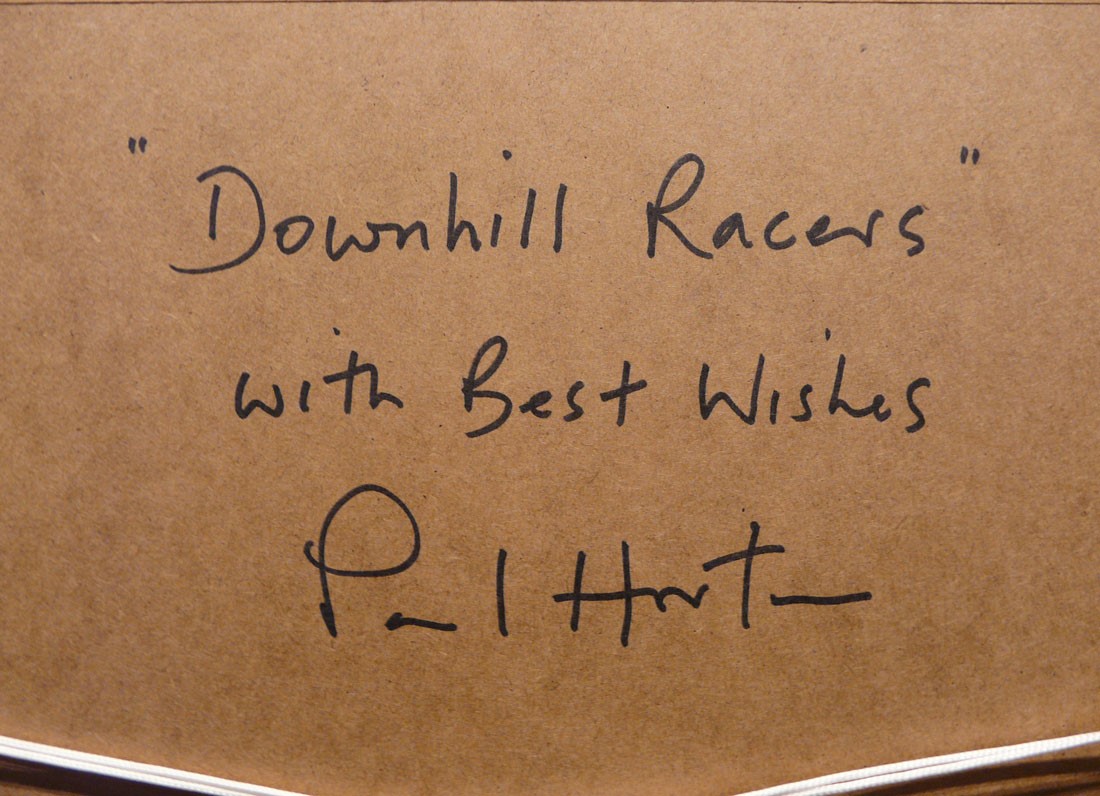 "Downhill Racers"
with Best Wishes
Paul Horton